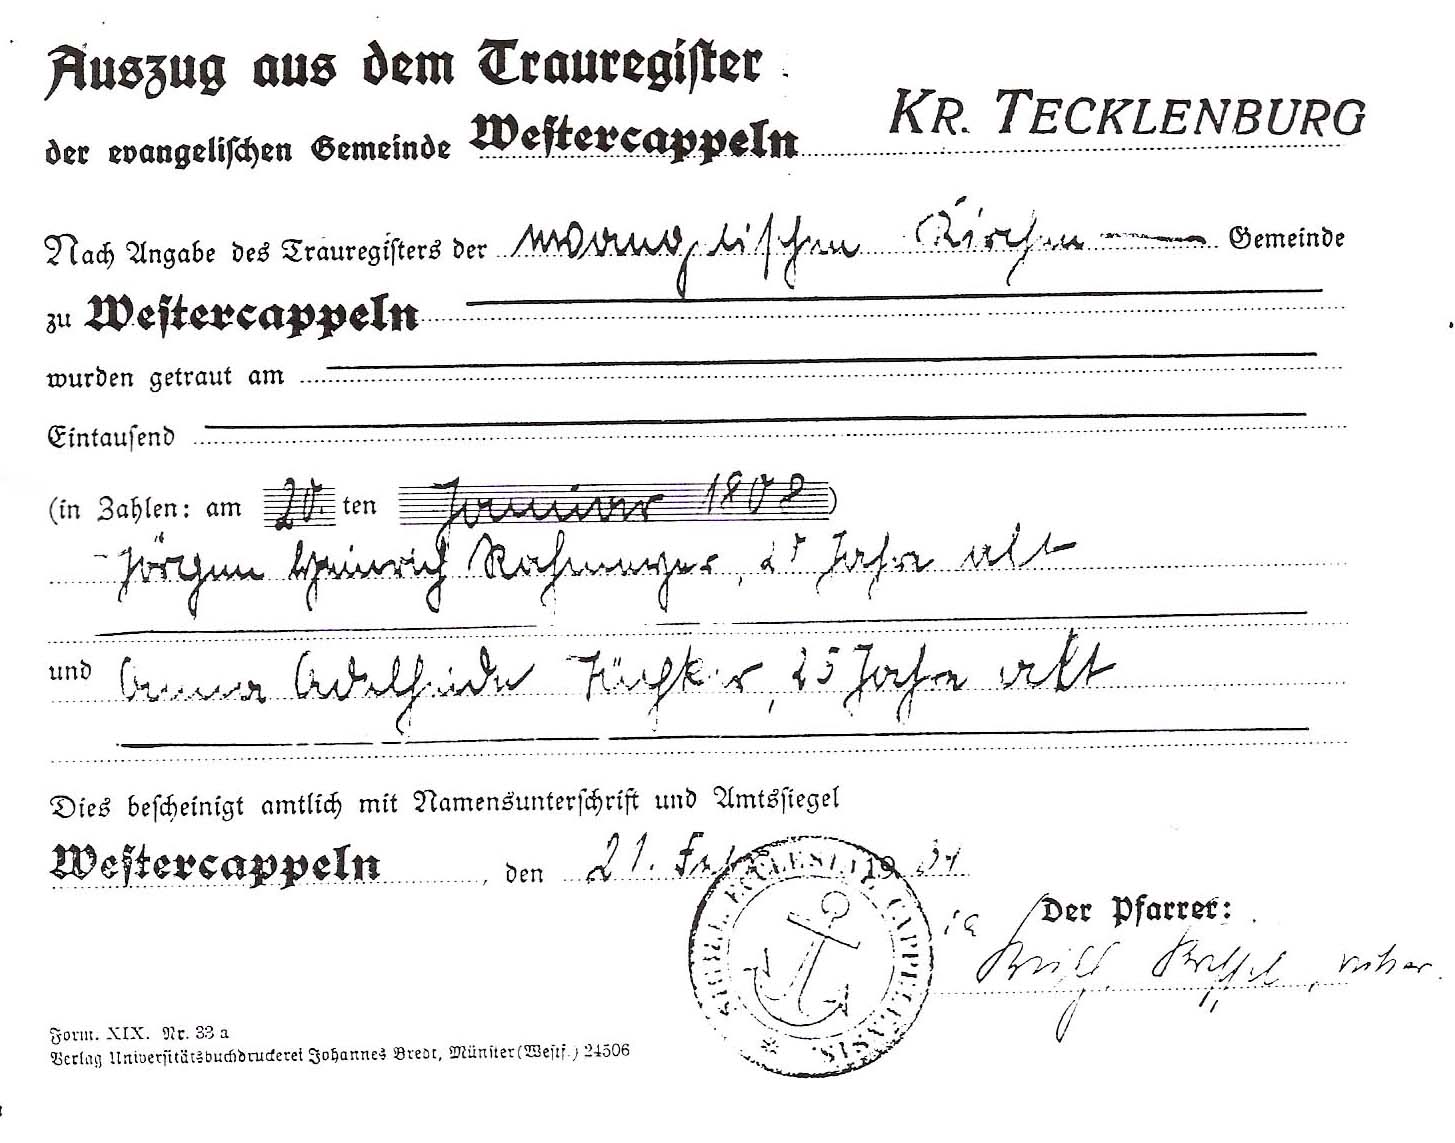 Auszug aus dem Trauregister
der evangelischen Gemeinde Westercappeln KR. TECKLENBURG
Nach Angabe des Trauregisters der evangelischen Kirchen Gemeinde
zu Westercappeln
wurden getraut am
Eintausend
(in Zahlen: am 20. ten Januar 1802)
Jörgen Heinrich, Jahre alt
und Anna Adelheide, 25 Jahre alt
Dies bescheinigt amtlich mit Namensunterschrift und Amtssiegel
Westercappeln, den 21. Feb. 19
Der Pfarrer:
Form. XIX. Nr. 33 a
Verlag Universitätsbuchdruckerei Johannes Bredt, Münster (Westf.) 24506